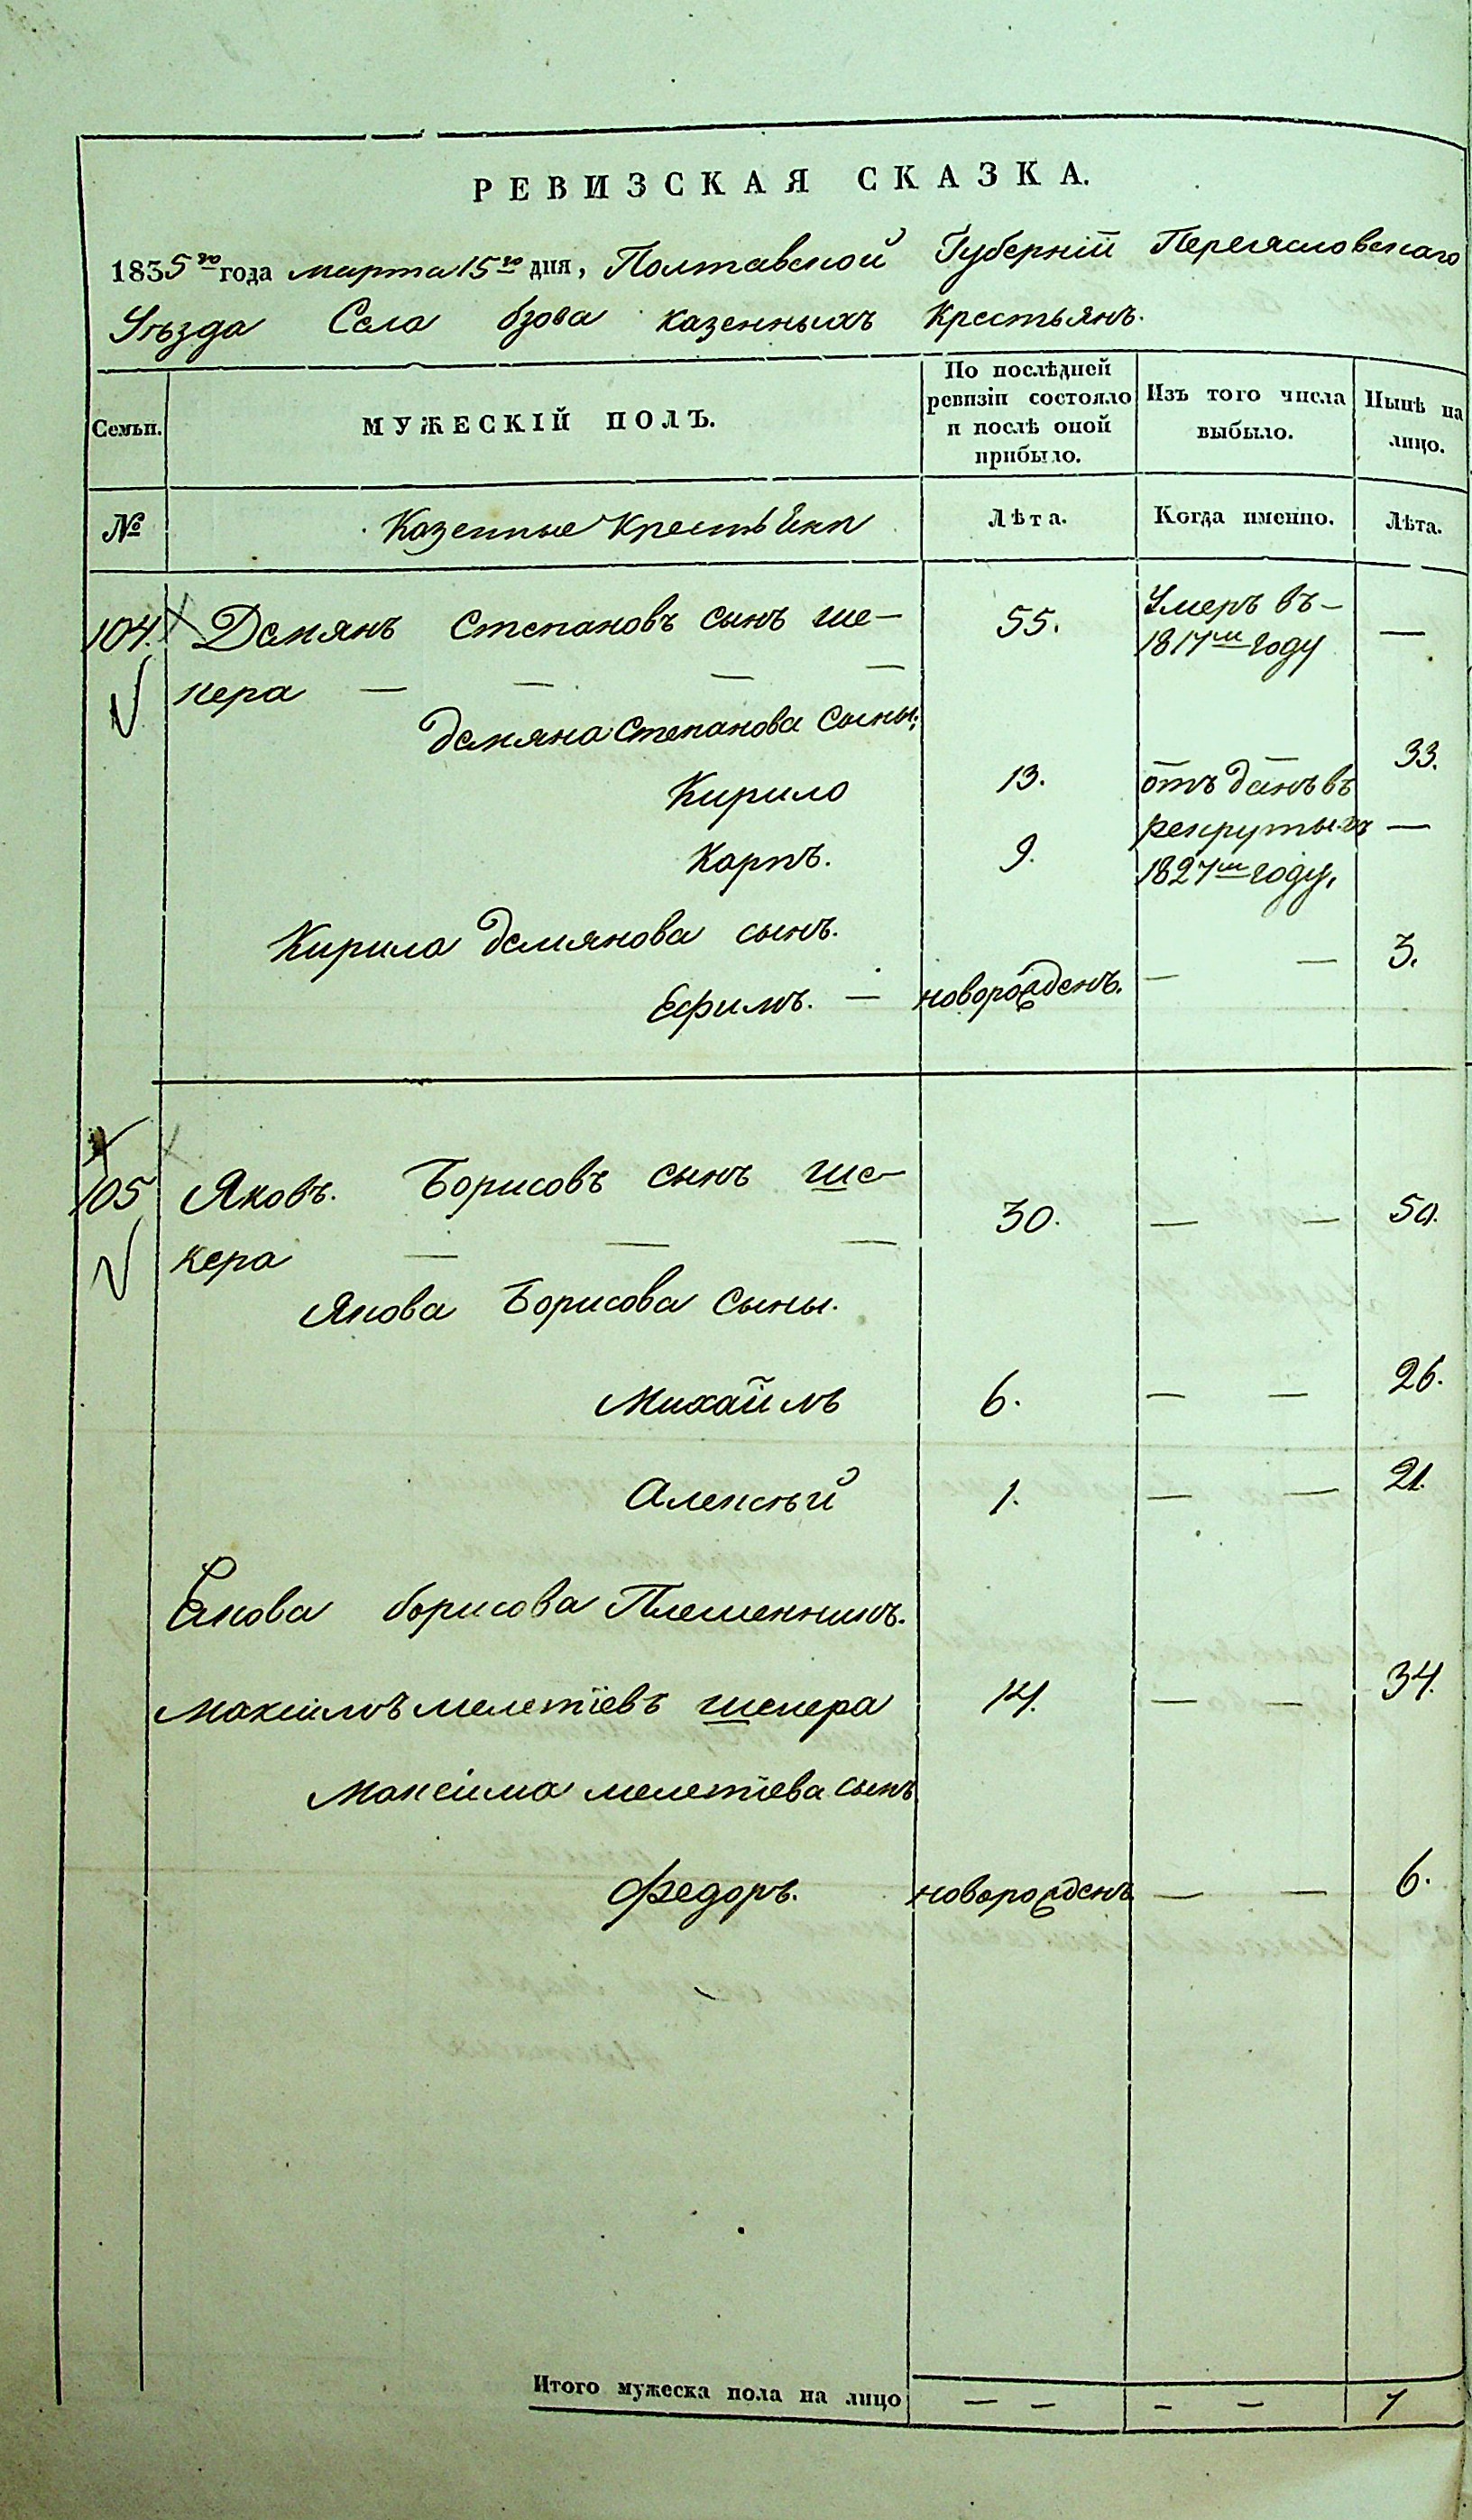 РЕВИЗСКАЯ СКАЗКА.
1835го года марта 15го дня, Полтавской Губерніи Переясловскаго
Уѣзда Села бзова казенныхъ Крестьянъ.
Семьи. МУЖЕСКІЙ ПОЛЪ. По послѣдней ревизіи состояло и послѣ оной прибыло. Изъ того числа выбыло. Нынѣ на лицо.
№ Казенные Крестьяни Лѣта. Когда именно. Лѣта.
104. Демянъ Степановъ сынъ ше- 55. Умеръ въ- —
кера — — — — 1817м году
демяна Степанова Сыны:
Кирило 13. — — 33.
Карпъ. 9. отъданъ въ рекруты въ 1827м году, —
Кирила демянова сынъ.
Ефимъ. — новорожденъ. — — 3.
105 Яковъ. Борисовъ сынъ ше- 30. — — 50.
кера — — —
Якова Борисова Сыны.
Михайлъ 6. — — 26.
Алексѣй 1. — — 21.
Якова борисова Племенникъ.
Максимъ мелетіевъ шекера 14. — — 34.
Максима мелетіева сынъ
Федоръ. новорожденъ — — 6.
Итого мужеска пола на лицо — — — — 7